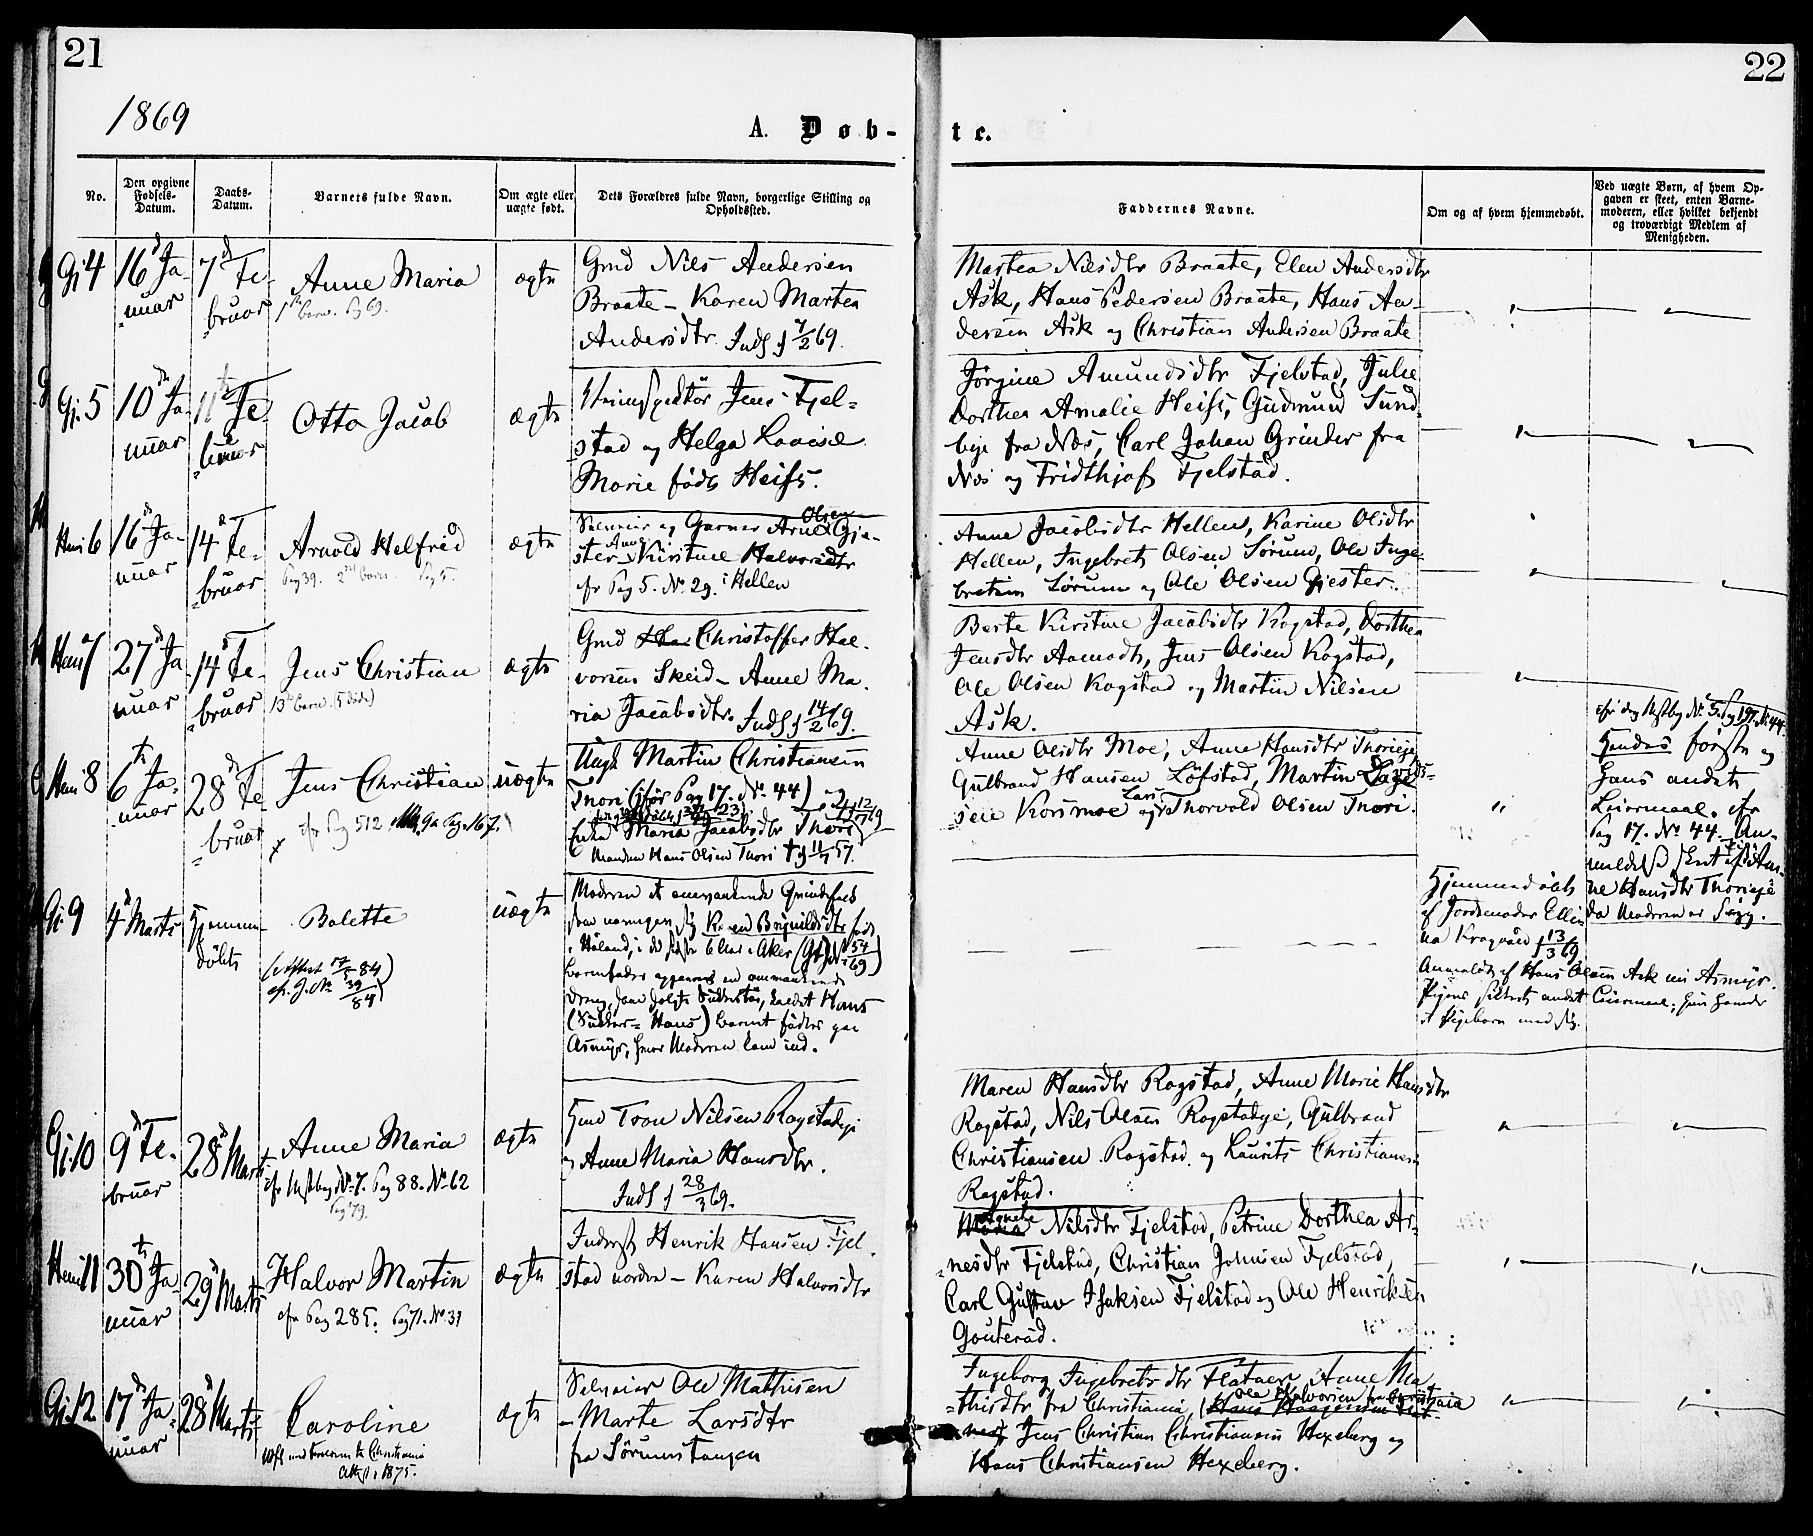 21
22
1869
A. Døb-
te.
No.
Den opgivne Fødsels-Datum.
Daabs-Datum.
Barnets fulde Navn.
Om ægte eller uægte født.
Dets Forældres fulde Navn, borgerlige Stilling og Opholdssted.
Faddernes Navne.
Om og af hvem hjemmedøbt.
Ved uægte Børn, af hvem Op-
gaven er skeet, enten Barne-
moderen, eller hvilket bekjendt
og troværdigt Medlem af
Menigheden.
Gi 4
16 Ja-
nuar
7 Fe-
bruar
Anne Maria
1ste Barn. Pg 69.
ægte
Gmd Nils Andersen
Braate - Karen Martea
Andersdtr. Inds. 7/2 69.
Martea Nilsdtr Braate, Elen Andersdtr
Ask, Hans Pedersen Braate, Hans An-
dersen Ask og Christian Andersen Braate
Gi. 5
10 Ja-
nuar
11 Fe-
bruar
Otto Jacob
ægte
Jens Fjel-
stad og Helga Lovise
Marie født Heiss.
Jørgine Amundsdtr Fjelstad, Julie
Dorthea Amalie Heiss, Gudmund Sund-
bye fra Næs, Carl Johan Grinder fra
Næs og Fridthjof Fjelstad.
Hem 6
16 Ja-
nuar
14 Fe-
bruar
Arnold Helfred
Pag 39. 2det Barn. Pg 5.
ægte
Selveier og Garver Arne Olsen Gjæ-
ster - Anne Kirstine Halvorsdtr
cfr Pag 5. No 29. i Hellen
Anne Jacobsdtr Hellen, Karine Olsdtr
Hellen, Ingebret Olsen Sørum, Ole Inge-
bretsen Sørum og Ole Olsen Gjester.
Hem 7
27 Ja
nuar
14 Fe-
bruar
Jens Christian
13de Barn (5 døde)
ægte
Gmd Christoffer Hal-
vorsen Skeid - Anne Ma-
ria Jacobsdtr. Inds. 14/2 69.
Berte Kirstine Jacobsdtr Kogstad, Dorthea
Jensdtr Aamodt, Jens Olsen Kogstad,
Ole Olsen Kogstad og Martin Nilsen
Ask.
Hem 8
6 Ja-
nuar
28 Fe
bruar
Jens Christian
cfr Pag 512
uægte
Ungk Martin Christiansen
Thori (jfør Pag 17. No 44) og
Enke Maria Jacobsdtr Thori
Manden Hans Olsen Thori † 11/7 57.
Anne Olsdtr Moe, Anne Hansdtr Thorieje
Gulbrand Hansen Löfstad, Martin
seie Korsmoe og Lars Thorvald Olsen Thori.
Hendes første og
Hans andet
Leiermaal. cfr
Pag 17. No 44. An-
meldelse skeet af An-
ne Hansdtr Thorieje
da Moderen er syg.
Gi 9
4 Marts
Hjemme-
døbt
Bolette
(Attest 17/5 84)
cfr. J. No 39/84
uægte
Moderen et omvankende Qvindfolk
som
Karen Bryuildsdtr født
i Høland, i de sidste 6 Aar i Aker
Barnefader opgives en omvankende
Dreng, kaldet Hans
(Sukker-Hans) Barnet fødtes paa
Asmyr, hvor Moderen kom ind.
Hjemmedøbt
af Jordemoder Elli-
na Kragvad 13/3 69
Anmeldt af Hans Olsen Ask nu Asmyr.
Pigens sidste andet Leiermaal; hun havde
et Pigebarn med sig.
Gi. 10
9 Fe-
bruar
28 Marts
Anne Maria
cfr Udflyt No 7. Pag 88. No 62
Pag 79.
ægte
Gmd Tron Nilsen Rogstadeje
og Anne Maria Hansdtr.
Inds. 28/3 69.
Maren Hansdtr Rogstad, Anne Marie Hansdtr
Rogstad, Nils Olsen Rogstadeje, Gulbrand
Christiansen Rogstad og Laurits Christiansen
Rogstad.
Hem 11
30 Ja
nuar
29 Marts
Halvor Martin
cfr Pag 285. Pag 71. No 31
ægte
Inderst Henrik Hansen Fjel-
stad nordre - Karen Halvorsdtr
Agnete Nilsdtr Fjelstad, Petrine Dorthea Ar-
nesdtr Fjelstad, Christian Johnsen Fjelstad,
Carl Gustav Isaksen Fjelstad og Ole Henriksen
Gouterud.
Gi. 12
17 Ja-
nuar
28 Marts
Caroline
Christiania
Attest 1875.
ægte
Selveier Ole Mathisen
- Marte Larsdtr
fra Sørumstangen
Ingeborg Ingebretsdtr Flataen, Anne Ma-
thisdtr fra Christiania, Ole Halvorsen fra Christiania
Jens Christian Christiansen Hexeberg og
Hans Christiansen Hexeberg.